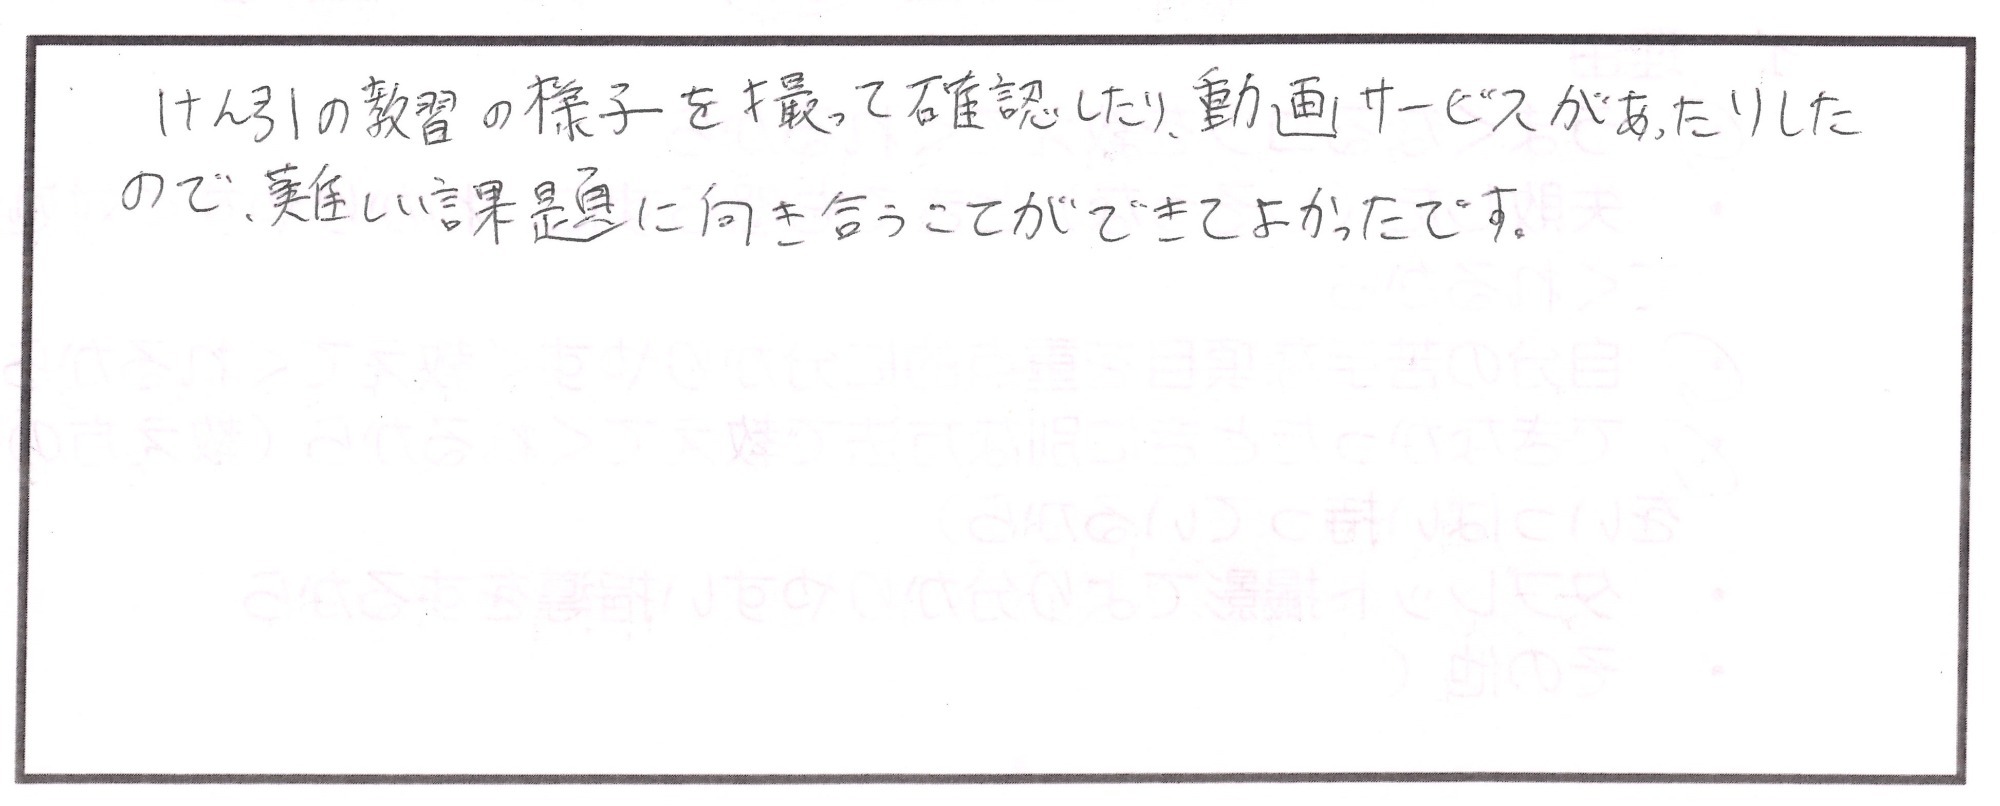 けん引の教習の様子を撮って確認したり、動画サービスがあったりした
ので、難しい課題に向き合うことができてよかったです。